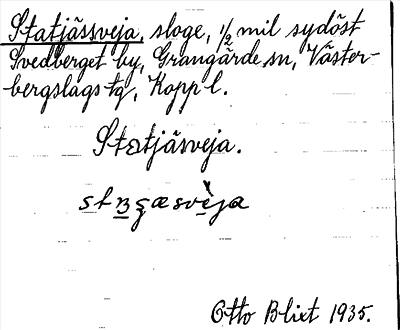 Statjässveja, sloge, 1/2 mil sydöst
Svedberget by, Grangärde sn, Väster-
bergslags tg, Kopp l.
Statjäsveja.
Otto Blixt 1935.